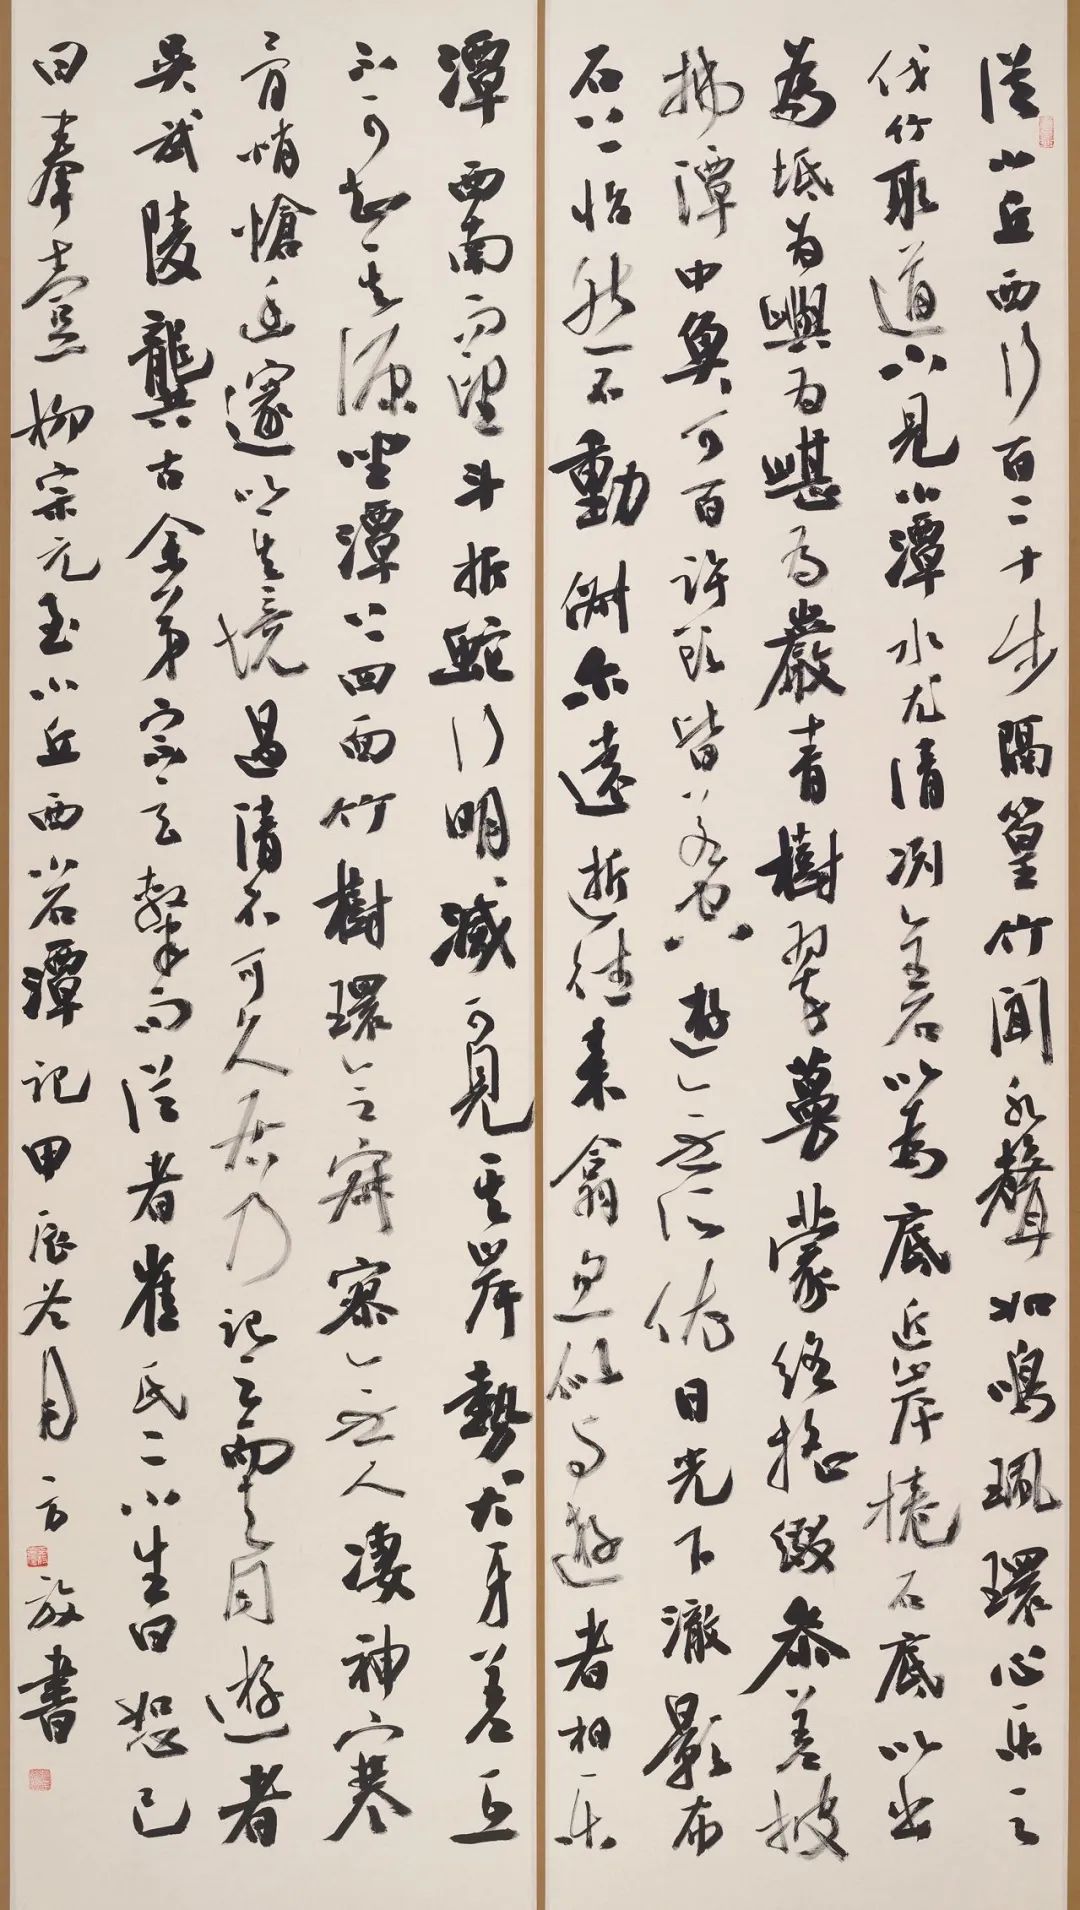 從小丘西行百二十步隔篁竹聞水聲如鳴珮環心樂之
伐竹取道下見小潭水尤清冽全石以為底近岸捲石底以出
為坻為嶼為嵁為巖青樹翠蔓蒙絡搖綴參差披
拂潭中魚可百許頭皆若空游無所依日光下澈影布
石上怡然不動俶爾遠逝往來翕忽似與遊者相樂
潭西南而望斗折蛇行明滅可見其岸勢犬牙差互
不可知其源坐潭上四面竹樹環合寂寥無人凄神寒
骨悄愴幽邃以其境過清不可久居乃記之而去同遊者
吳武陵龔古余弟宗玄隸而從者崔氏二小生曰恕己
曰奉壹柳宗元至小丘西小石潭記甲辰冬月方放書